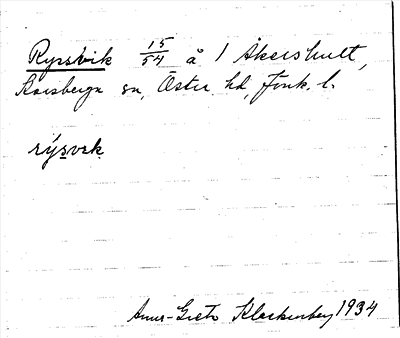 Ryssvik 15/54 å 1 Åkershult,
Korsberga sn, Östra hd, Jönk. l.
rýsvɩk
Anna-Greta Klackenberg 1934